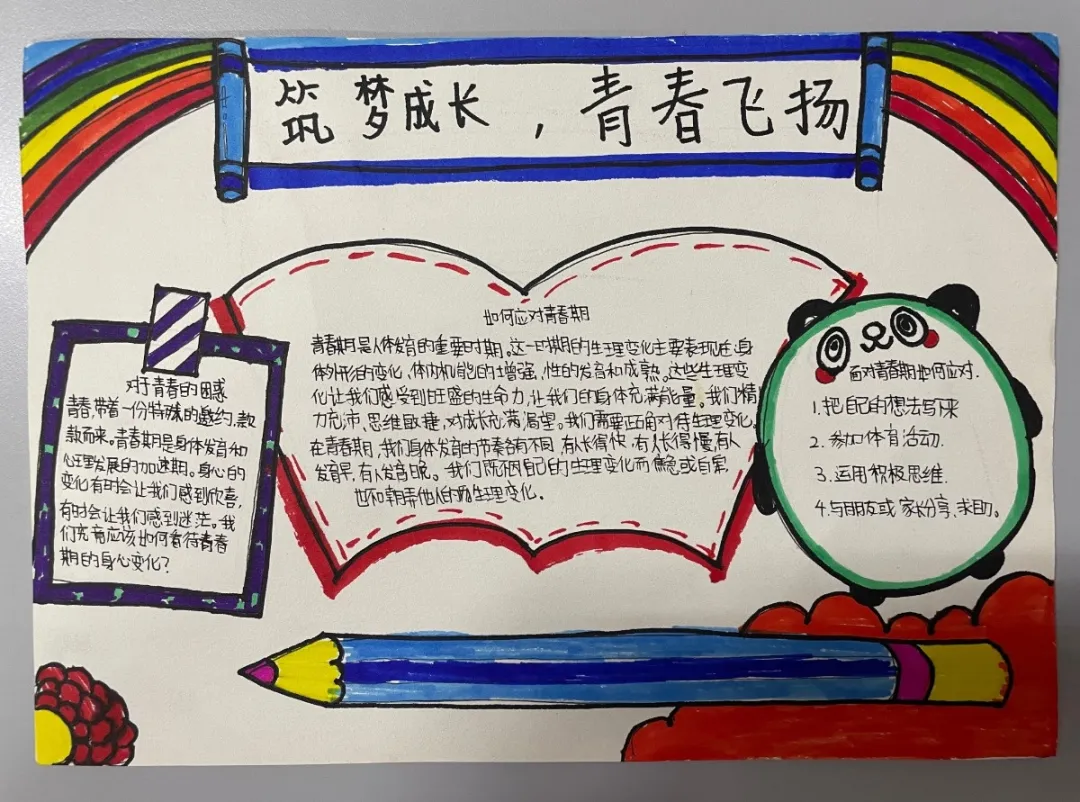 筑梦成长，青春飞扬
对于青春的困惑
青春，带着一份特殊的邀约，款
款而来。青春期是身体发育和
心理发展的加速期。身心的
变化有时会让我们感到欣喜，
有时会让我们感到迷茫。我
们究竟应该如何看待青春
期的身心变化？
如何应对青春期
青春期是人体发育的重要时期。这一时期的生理变化主要表现在：身
体外形的变化，体内机能的增强，性的发育和成熟。这些生理变
化让我们感受到旺盛的生命力，让我们的身体充满能量。我们精
力充沛，思维敏捷，对成长充满渴望。我们需要正确对待生理变化。
在青春期，我们身体发育的节奏各有不同，有人长得快，有人长得慢，有人
发育早，有人发育晚。我们不因自己的生理变化而焦急或自卑，
也不嘲弄他人的生理变化。
面对青春期如何应对.
1.把自己的想法写下来
2.参加体育活动.
3.运用积极思维.
4.与朋友或家长分享、求助。